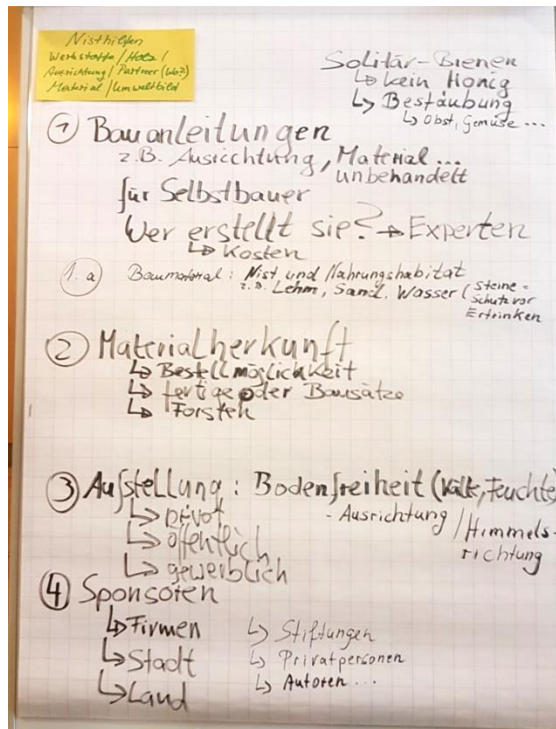 Nisthilfen
Werkstoffe / Holz /
Ausrichtung / Partner (Wo?)
Material / Umweltbild
Solitär-Bienen
↳ kein Honig
↳ Bestäubung
↳ Obst, Gemüse ...
① Bauanleitungen
z.B. Ausrichtung, Material ...
unbehandelt
für Selbstbauer
Wer erstellt sie? → Experten
↳ Kosten
1.a Baumaterial: Nist und Nahrungshabitat
z.B. Lehm, Sand, Wasser (Steine =
Schutz vor
Ertrinken
② Materialherkunft
↳ Bestellmöglichkeit
↳ fertige oder Bausätze
↳ Forsten
③ Aufstellung: Bodenfreiheit (Kälte, Feuchte)
- Ausrichtung / Himmels-
richtung
↳ privat
↳ öffentlich
↳ gewerblich
④ Sponsoren
↳ Firmen ↳ Stiftungen
↳ Stadt ↳ Privatpersonen
↳ Land ↳ Autoren ...